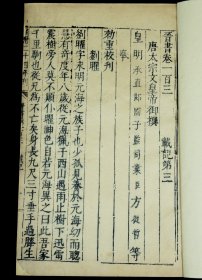 晉書卷一百三 載記第三
唐太宗文皇帝御撰
皇明承直郎國子監司業臣方從哲等
奉
勑重校刊
劉曜
劉曜字永明元海之族子也少孤見養於元海幼而聰
慧有奇度年八歲從元海獵于西山遇雨止樹下迅雷
震樹旁人莫不顛仆曜神色自若元海異之曰此吾家
千里駒也從兄為不亡矣身長九尺三寸垂手過膝生